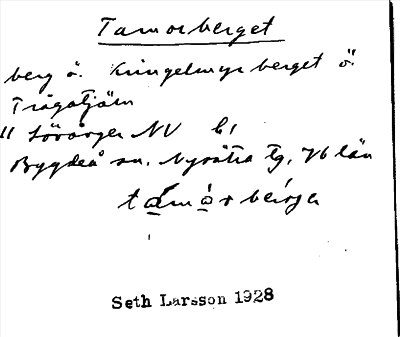 Tamorberget
berg ö. Kringelmyrberget ö.
Trågatjärn
" Lövånger NV b1
Bygdeå sn. Nysätra tg, Vb län
tamårbe
Seth Larsson 1928